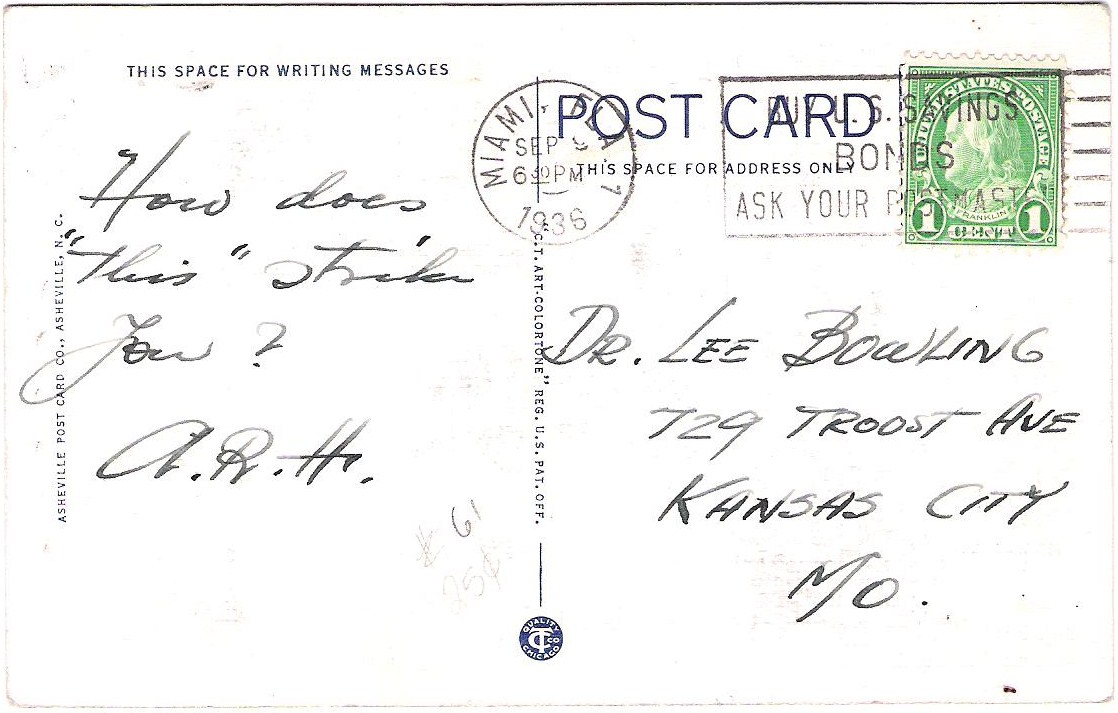 THIS SPACE FOR WRITING MESSAGES
How does
"this" strike
You?
A.R.H.
# 61
25¢
ASHEVILLE POST CARD CO., ASHEVILLE, N. C.
C.T. ART-COLORTONE" REG. U.S. PAT. OFF.
QUALITY
CT CO
CHICAGO
POST CARD
THIS SPACE FOR ADDRESS ONLY
MIAMI, FLA.
SEP
6 30 PM
1936
1
BUY U.S. SAVINGS
BONDS
ASK YOUR POSTMASTER
FRANKLIN
1 1
DR. LEE BOWLING
729 TROOST AVE
KANSAS CITY
MO.